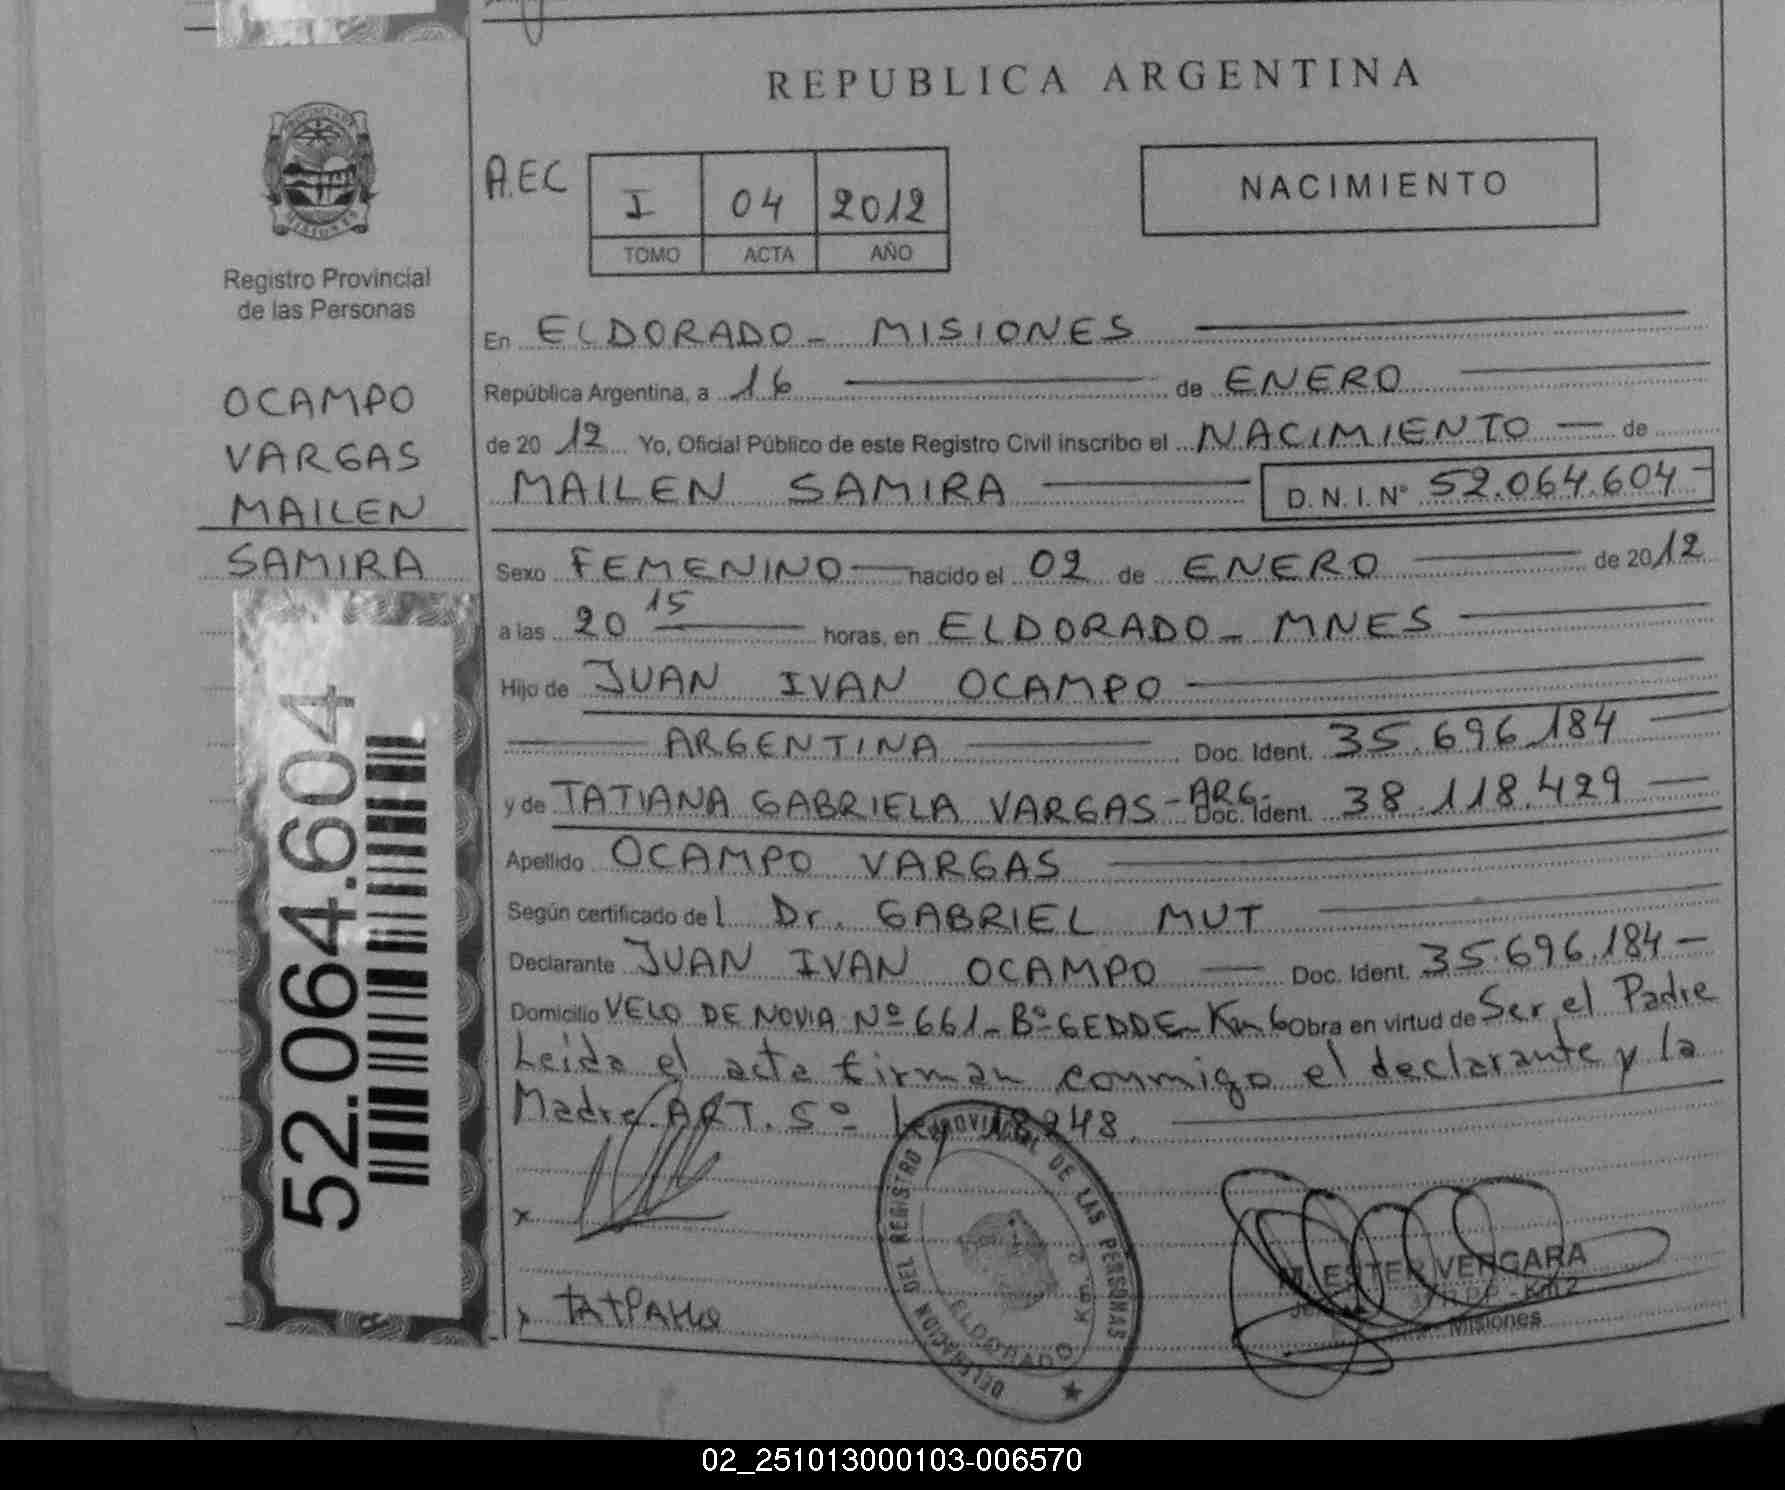 REPUBLICA ARGENTINA
Registro Provincial
de las Personas
A.EC
I 04 2012
TOMO ACTA AÑO
NACIMIENTO
OCAMPO
VARGAS
MAILEN
SAMIRA
52.064.604
En ELDORADO - MISIONES
República Argentina, a 16 de ENERO
de 20 12 Yo, Oficial Público de este Registro Civil inscribo el NACIMIENTO de
MAILEN SAMIRA D.N.I.Nº 52.064.604-
Sexo FEMENINO nacido el 02 de ENERO de 2012
a las 20 15 horas, en ELDORADO - MNES
Hijo de JUAN IVAN OCAMPO
ARGENTINA Doc. Ident. 35.696.184
y de TATIANA GABRIELA VARGAS - ARG- Doc. Ident. 38.118.429
Apellido OCAMPO VARGAS
Según certificado de l Dr. GABRIEL MUT
Declarante JUAN IVAN OCAMPO Doc. Ident. 35.696.184-
Domicilio VELO DE NOVIA Nº 661- Bº GEDDE- Km 6 Obra en virtud de Ser el Padre
Leida el acta firman conmigo el declarante y la
Madre. ART. 5º Ley 18248.
x
DELEGACION DEL REGISTRO PROVINCIAL DE LAS PERSONAS
ELDORADO Km. 2
M. ESTER VERGARA
R.P.P - Km 2
Misiones
x
02_251013000103-006570